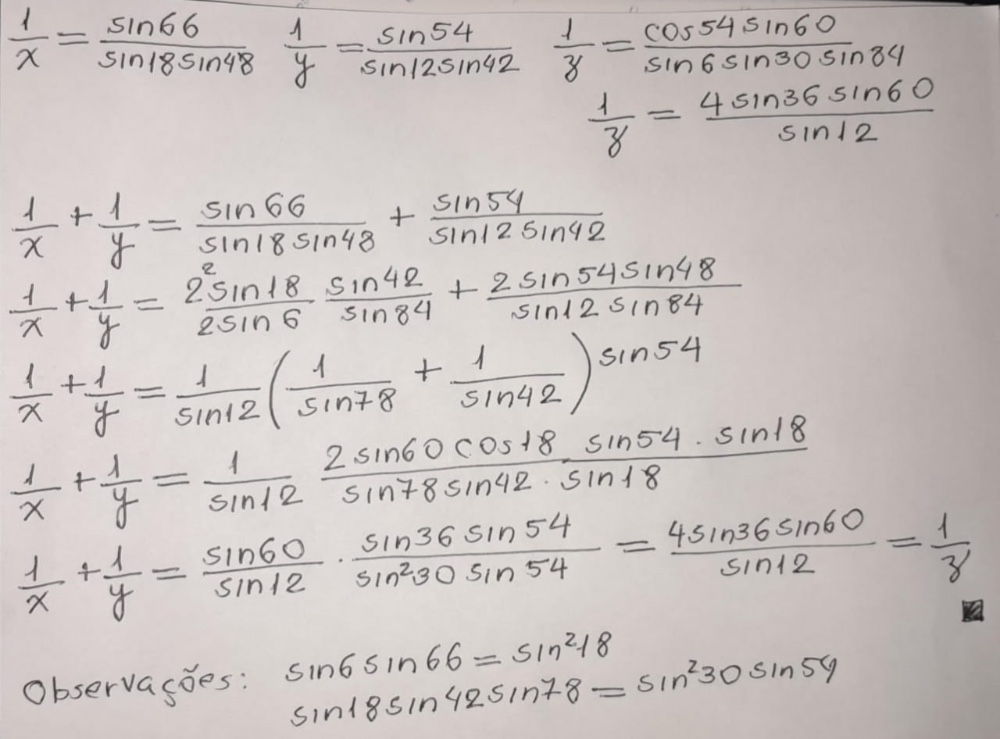 1/x = sin66/sin18sin48   1/y = sin54/sin12sin42   1/z = cos54sin60/sin6sin30sin84
1/z = 4sin36sin60/sin12
1/x + 1/y = sin66/sin18sin48 + sin54/sin12sin42
1/x + 1/y = 2²sin18/2sin6 sin42/sin84 + 2sin54sin48/sin12sin84
1/x + 1/y = 1/sin12 (1/sin78 + 1/sin42) sin54
1/x + 1/y = 1/sin12 2sin60cos18 sin54 · sin18/sin78sin42 · sin18
1/x + 1/y = sin60/sin12 · sin36sin54/sin²30sin54 = 4sin36sin60/sin12 = 1/z
Observações: sin6sin66 = sin²18
sin18sin42sin78 = sin²30sin54